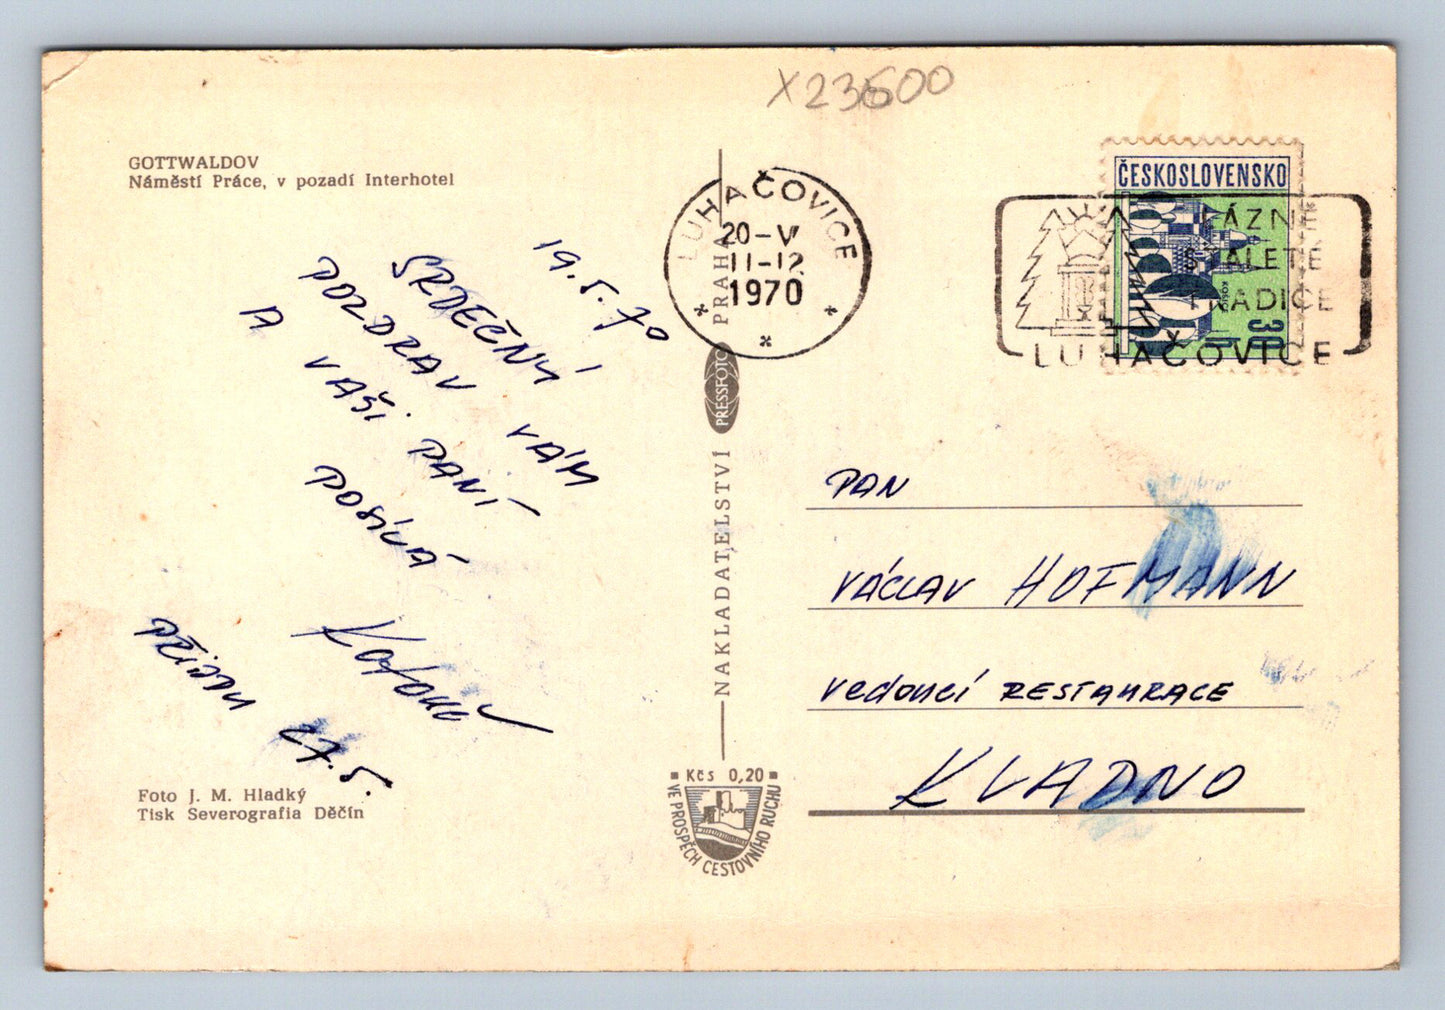 X23600
GOTTWALDOV
Náměstí Práce, v pozadí Interhotel
19. 5. 70
SRDEČNÝ
POZDRAV VÁM
A VAŠI PANÍ
POSÍLÁ
PŘIJDU 27.5.
Foto J. M. Hladký
Tisk Severografia Děčín
LUHAČOVICE
20-V
11-12
1970
NAKLADATELSTVÍ PRESSFOTO PRAHA
Kčs 0,20
VE PROSPĚCH CESTOVNÍHO RUCHU
ČESKOSLOVENSKO
30 h
LÁZNĚ
STALETÉ
TRADICE
LUHAČOVICE
PAN
VÁCLAV HOFMANN
VEDOUCÍ RESTAURACE
KLADNO